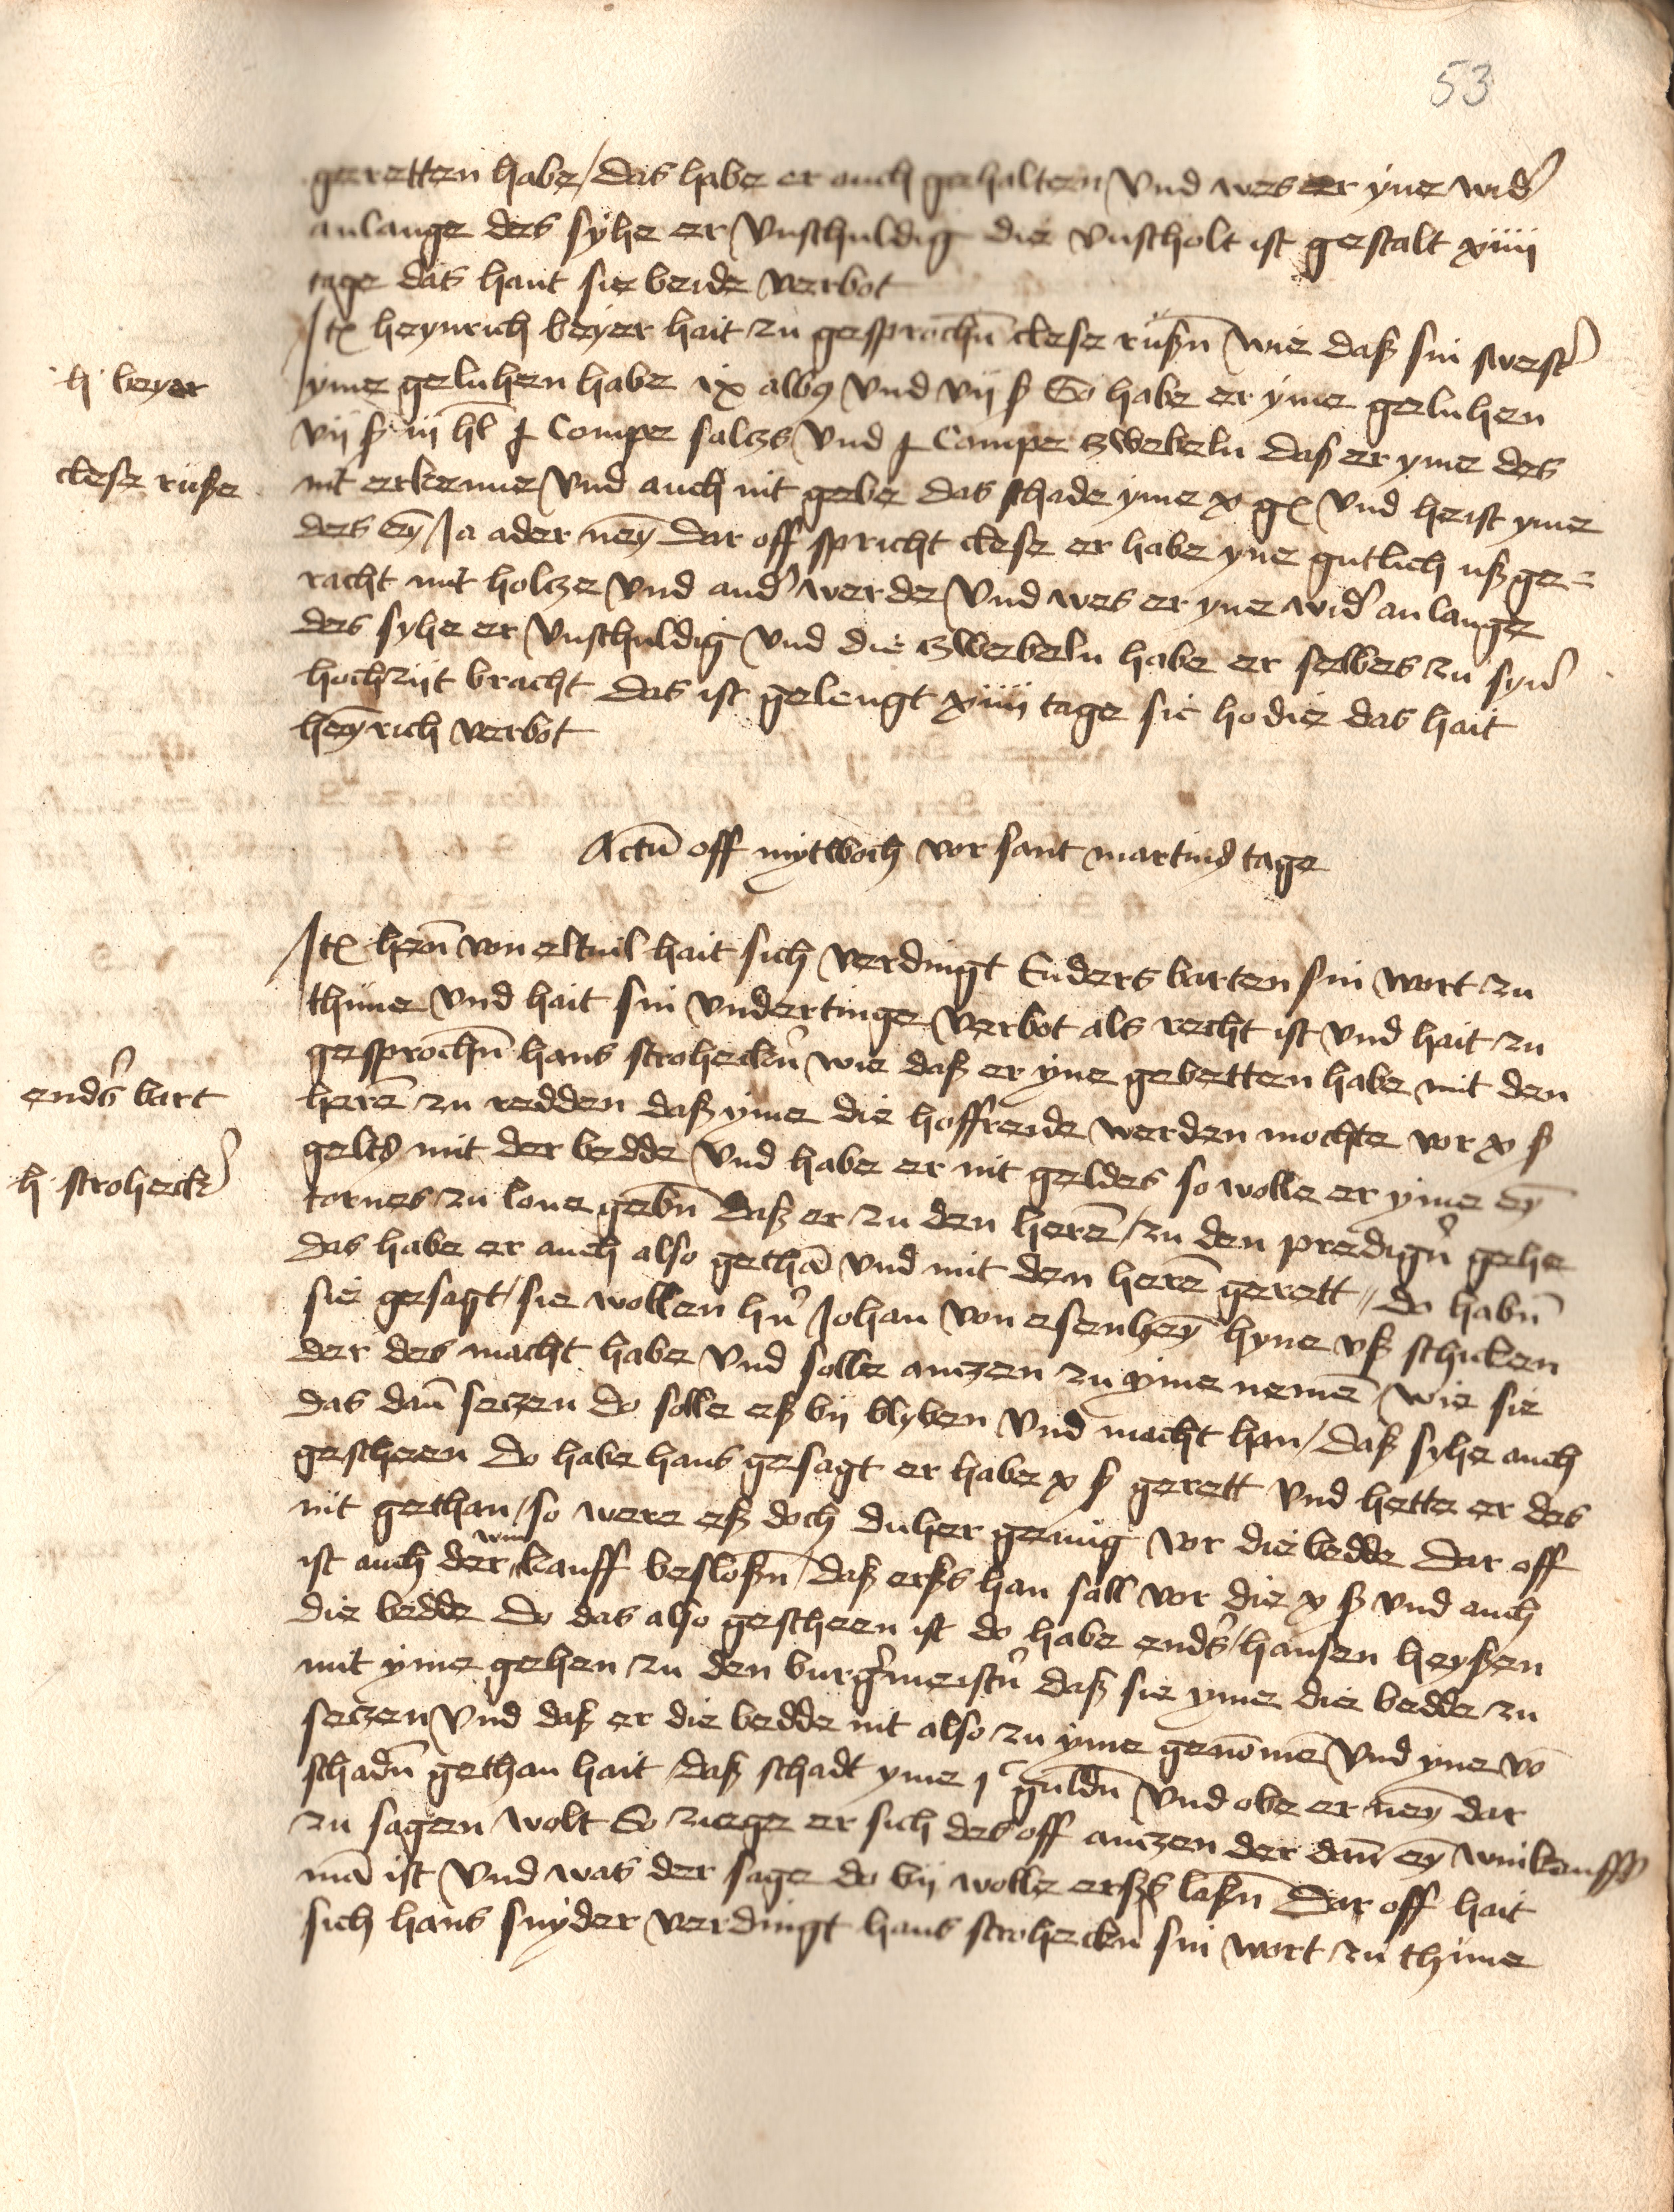 53
geretten habe / das habe er auch gehalten und wes er yne wid(er)
anlange des syhe er unschuldig die unscholt ist gestalt xiiii
tage das hant sie beide verbot
Jt(em) heynrich beyer hait zu gesproch(e)n clese rußn wie daß sin swest(er)
h beyer
yme geluhen habe ix alb(us) und vii ß So habe er yme geluhen
vii ß iii hl Compe salczs und Compe zwebeln daß er yme des
clese ruße
nit erkenne und auch nit gebe das schade yme x g(u)l(den) und heist yme
des ey(n) Ja ader ney(n) Dar off spricht clese er habe yne gutlich ußge=
racht mit holcze und and(er) werde und wes er yne wid(er) anlange
des syhe er unschuldig und die zwebeln habe er selbes zu syn(er)
hochzijt bracht das ist gelengt xiiii tage sic hodie das hait
hey(n)rich verbot
Actu(m) off mytwoch vor sant martins tage
Jt(em) hen(n) von eltuil hait sich verdingt Enders barten sin wort zu
thune und hait sin undertinge verbot als recht ist und hait zu
gesproch(e)n hans strohecker(n) wie daß er yne gebetten habe mit den
ends(er) bart
here(n) zu redden daß yme die hoffreide werden mochte vor x ß
h strohecke(r)
gelts mit der bedde und habe er nit geldes so wolle er yme ey(n)
tornes zu lone geb(e)n daß er zu den here(n) / zu den prediger(n) gehe
das habe er auch also getha(n) und mit den here(n) gerett // do hab(e)n
sie gesagt / sie wollen h(er)n Johan von esenhey(m) hyne uß schicken
der des macht habe und solle anczen zu yme neme(n) wie sie
das dan(n) seczen do solle eß bij blyben und macht han / daß syhe auch
gescheen do habe hans gesagt er habe x ß gerett und hette er des
nit gethan / so were eß doch duher genug vor die bedde Dar off
ist auch der win kauff besloß(e)n / daß erßs han sall vor die x ß und auch
die bedde do das also gescheen ist do habe ends(er) / hansen heyßen
mit yme gehen zu den burg(er)meister(n) daß sie yme die bedde zu
seczen und daß er die bedde nit also zu yme geno(m)me(n) und yne vo(n)
schad(e)n gethan hait daß schadt yme j c guld(e)n und obe er ney(n) dar
zu sagen wolt So ziege er sich des off anczen der dan(n) ey(n) winkauffs
ma(n) ist und was der sage do bij wolle erßs laß(e)n Dar off hait
sich hans snyder verdingt hans strohecker(n) sin wort zu thune